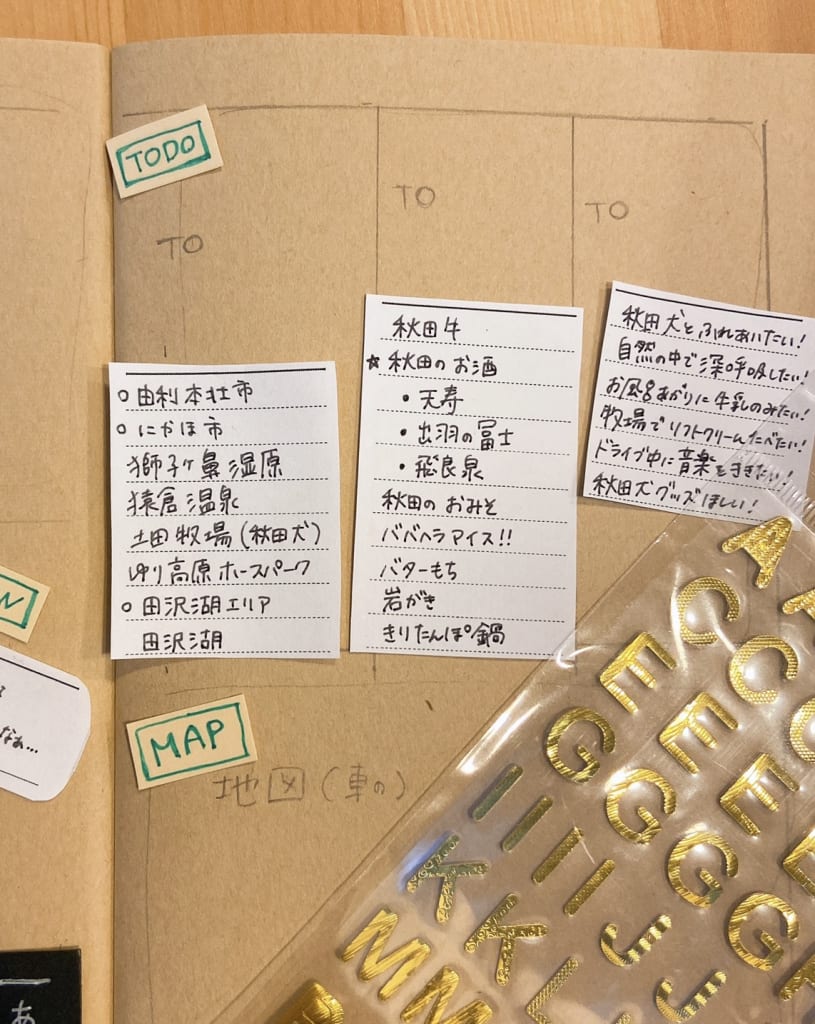 TODO
TO
TO
TO
○ 由利本荘市
○ にかほ市
獅子ヶ鼻湿原
猿倉温泉
土田牧場(秋田犬)
ゆり高原ホースパーク
○ 田沢湖エリア
田沢湖
秋田牛
☆ 秋田のお酒
・天寿
・出羽の冨士
・飛良泉
秋田のおみそ
ババヘラアイス!!
バターもち
岩がき
きりたんぽ鍋
秋田犬とふれあいたい!
自然の中で深呼吸したい!
お風呂あがりに牛乳のみたい!
牧場でソフトクリームたべたい!
ドライブ中に音楽をききたい!
秋田犬グッズほしい!
N
なぁ…
MAP
地図(車の)
あ
A
C C
E E E
G G G G
I I I I J
K K L J
M M